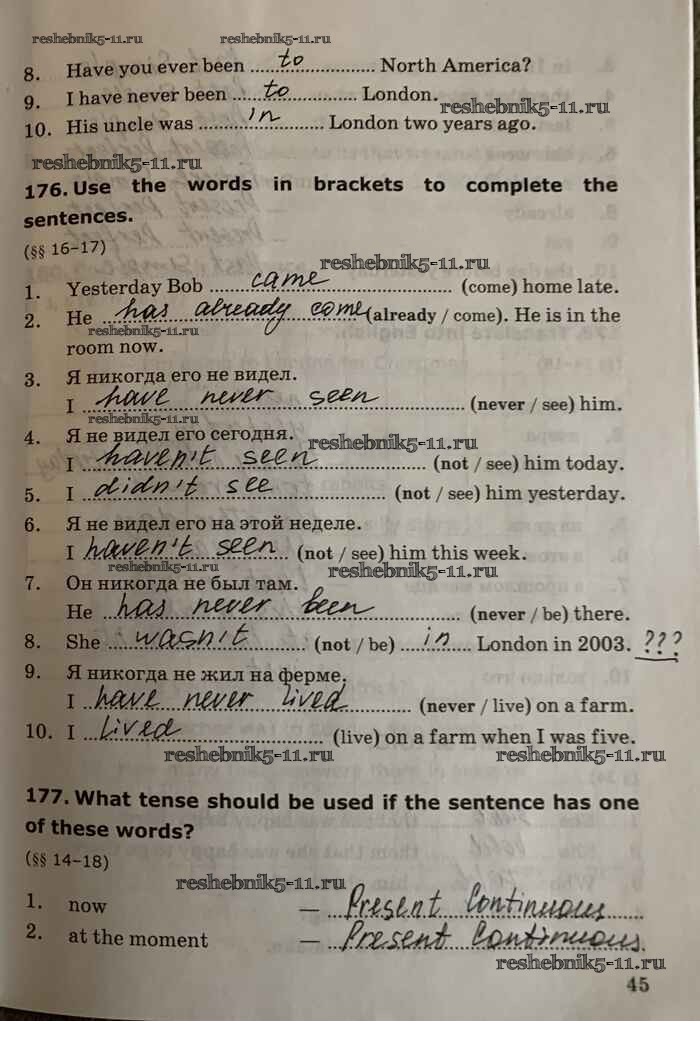 reshebnik5-11.ru reshebnik5-11.ru
8. Have you ever been ....to.... North America?
9. I have never been ....to.... London.
reshebnik5-11.ru
10. His uncle was ....in.... London two years ago.
reshebnik5-11.ru
176. Use the words in brackets to complete the
sentences.
(§§ 16–17)
reshebnik5-11.ru
1. Yesterday Bob ....came.... (come) home late.
2. He ....has already come (already / come). He is in the
reshebnik5-11.ru
room now.
3. Я никогда его не видел.
I ....have never seen.... (never / see) him.
reshebnik5-11.ru
4. Я не видел его сегодня.
reshebnik5-11.ru
I ....haven't seen.... (not / see) him today.
5. I ....didn't see.... (not / see) him yesterday.
6. Я не видел его на этой неделе.
I ....haven't seen.... (not / see) him this week.
reshebnik5-11.ru reshebnik5-11.ru
7. Он никогда не был там.
He ....has never been.... (never / be) there.
8. She ....wasn't.... (not / be) ....in.... London in 2003. ???
9. Я никогда не жил на ферме.
I ....have never lived.... (never / live) on a farm.
10. I ....lived.... (live) on a farm when I was five.
reshebnik5-11.ru reshebnik5-11.ru
177. What tense should be used if the sentence has one
of these words?
(§§ 14–18)
reshebnik5-11.ru
1. now — Present Continuous
2. at the moment — Present Continuous
reshebnik5-11.ru
45